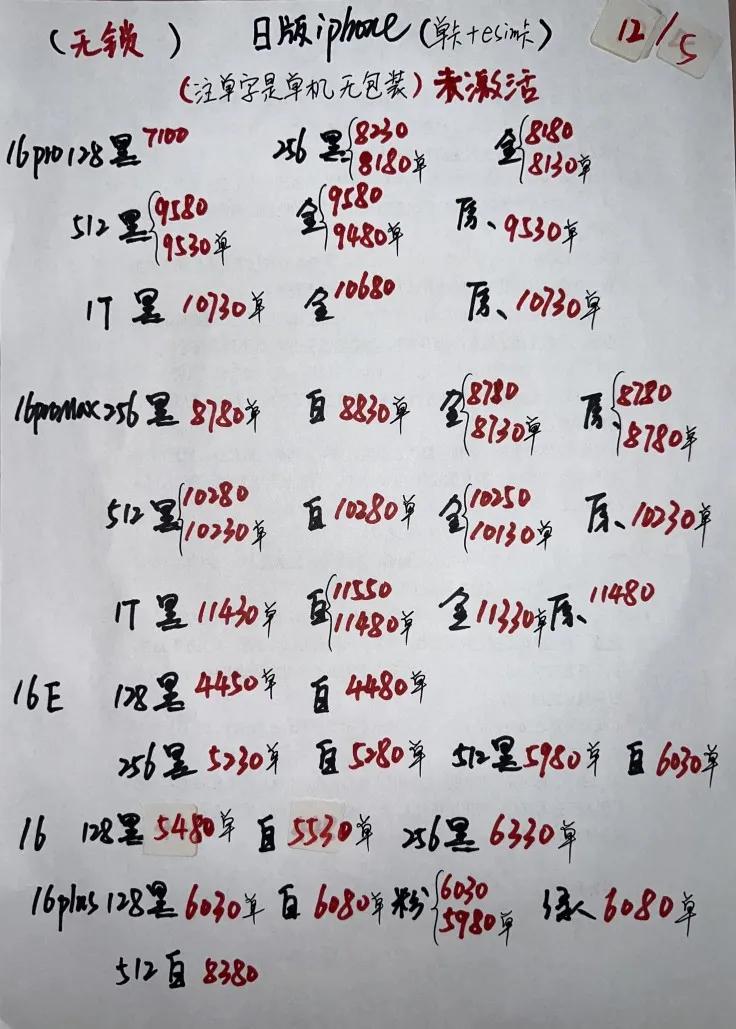 (无锁) 日版iphone(单卡+esim卡) 12/5
(注单字是单机无包装)未激活
16pro128黑7100 256黑{8230 8180单 金{8180 8130单
512黑{9580 9530单 金{9580 9480单 原、9530单
1T黑10730单 金10680 原、10730单
16promax256黑8780单 白8830单 金{8780 8730单 原、{8780 8780单
512黑{10280 10230单 白10280单 金{10250 10130单 原、10230单
1T黑11430单 白{11550 11480单 金11330单 原、11480
16E 128黑4450单 白4480单
256黑5230单 白5280单 512黑5980单 白6030单
16 128黑5480单 白5530单 256黑6330单
16plus128黑6030单 白6080单 粉{6030 5980单 6080单
512白8380